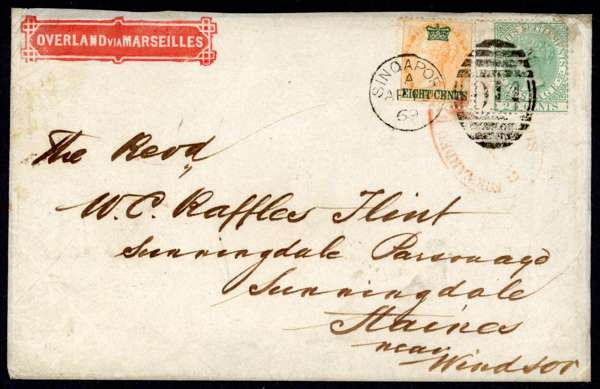 OVERLAND VIA MARSEILLES
EIGHT CENTS
CENTS
SINGAPORE
A
AP
69
The Revd
W.C. Raffles Flint
Sunningdale Parsonage
Sunningdale
Staines
near Windsor